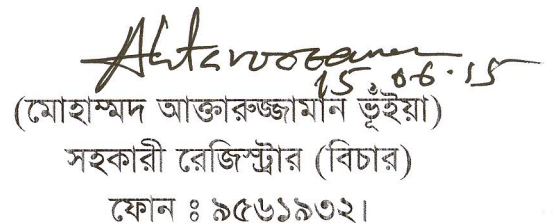 Aktaruzzaman
15.06.15
(মোহাম্মদ আক্তারুজ্জামান ভূঁইয়া)
সহকারী রেজিস্ট্রার (বিচার)
ফোন ঃ ৯৫৬১৯৩২।